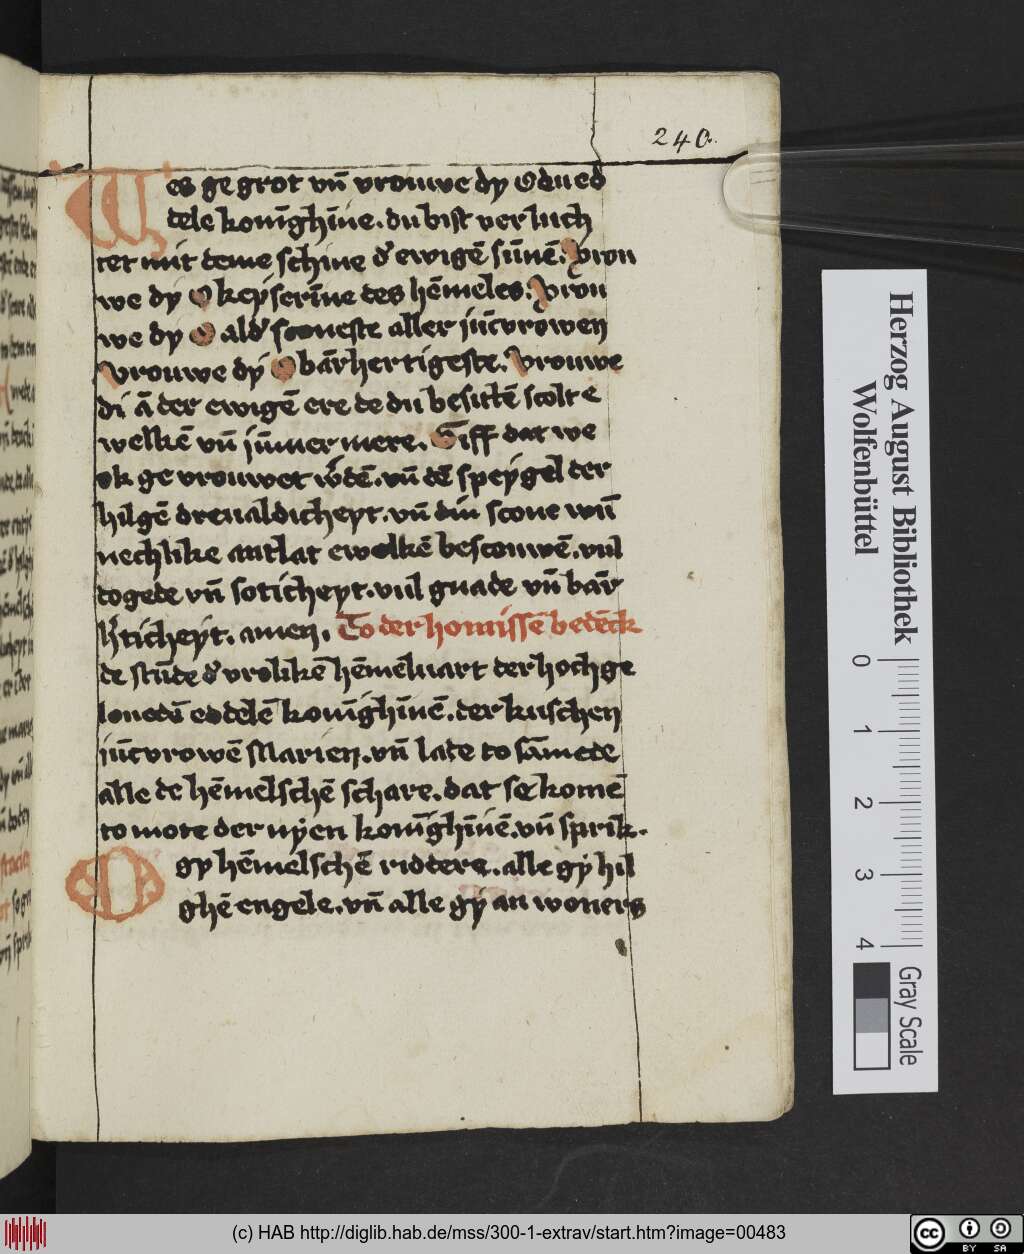 240.
Wes ge grot vn̄ vrouwe dy O du ed
dele konīghīne. du bist ver luch
tet mit deme schine d' ewigē sūnē. Vrou
we dy O keyserīne des hēmeles. Vrou
we dy O ald' sconeste aller jūcvrowen
Vrouwe dy O bārhertigeste. Vrouwe
di ā der ewigē ere de du besittē scolt e
welkē vn̄ jūmer mere. Giff dat we
ok ge vrouwet w'dē. vn̄ dē speygel der
hilgē dreualdicheyt. vn̄ din scone wū
nechlike antlat ewelkē bescouwē. vul
dogede vn̄ soticheyt. vul gnade vn̄ bār
h'ticheyt. amen. To der homissē bedēck
de stūde d' vrolikē hēmeluart der hochge
louedē eddelē konīghīnē. der kuschen
jūcvrowē Marien. vn̄ lade to sāmede
alle de hēmelschē schare. dat se komē
to mote der nyen konīghīnē. vn̄ sprik.
O gy hēmelschē riddere. alle gy hil
ghē engele. vn̄ alle gy an woners
Herzog August Bibliothek
Wolfenbüttel
0 1 2 3 4
Gray Scale
(c) HAB http://diglib.hab.de/mss/300-1-extrav/start.htm?image=00483
cc BY SA